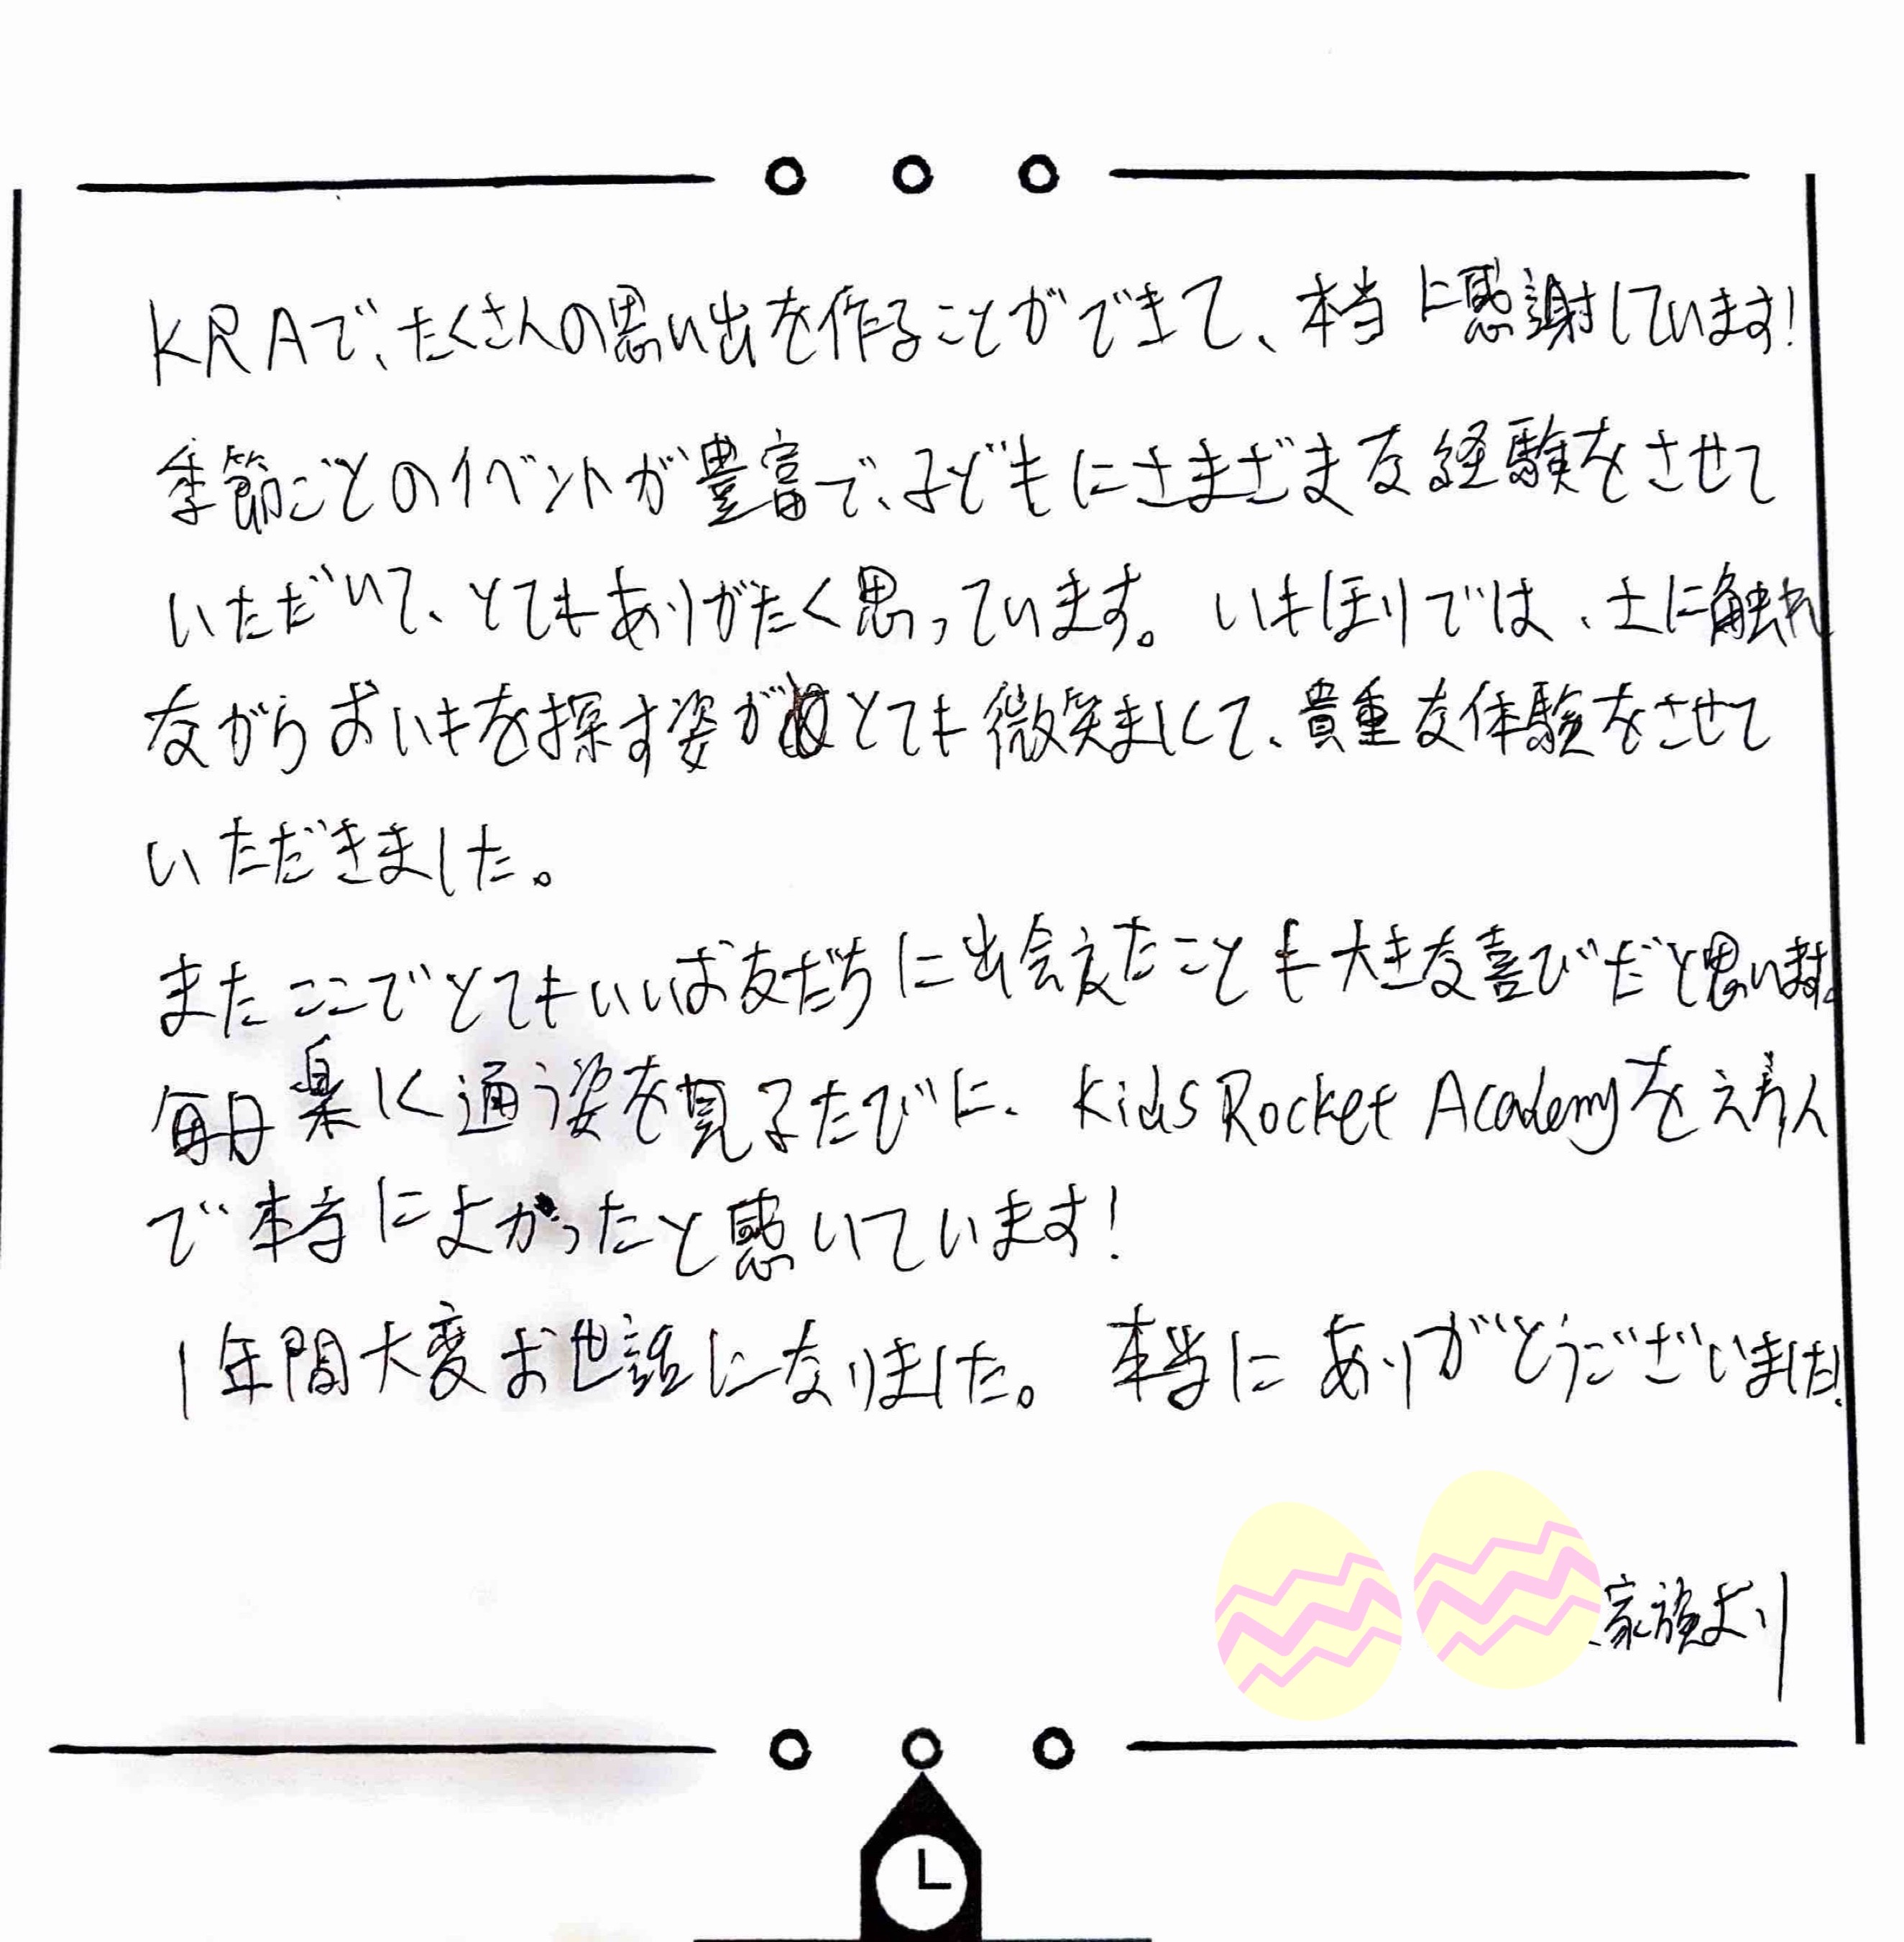 KRAで、たくさんの思い出を作ることができて、本当に感謝しています!
季節ごとのイベントが豊富で、子どもにさまざまな経験をさせて
いただいて、とてもありがたく思っています。いもほりでは、土に触れ
ながらおいもを探す姿がとても微笑ましくて、貴重な体験をさせて
いただきました。
またここでとてもいいお友だちに出会えたことも大きな喜びだと思います。
毎日楽しく通う姿を見るたびに、Kids Rocket Academyをえらん
で本当によかったと感いています!
1年間大変お世話になりました。本当にありがとうございました!
家族より